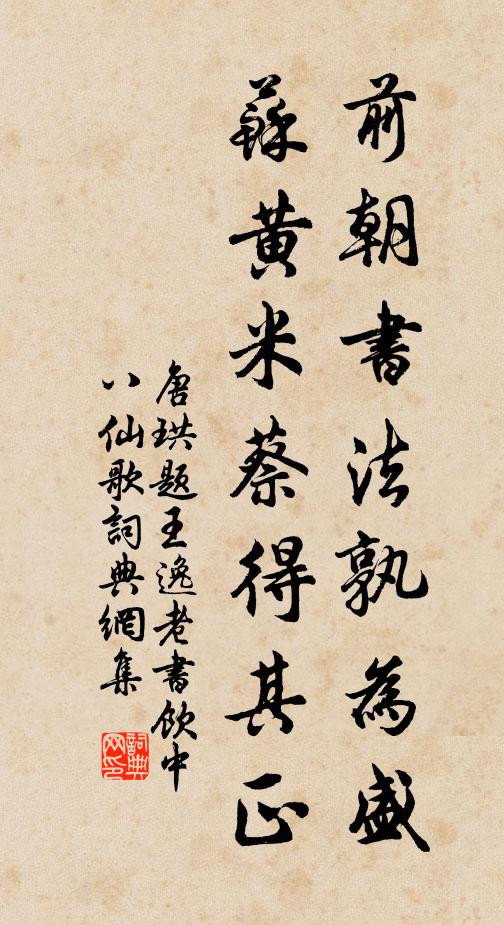 前朝書法孰為盛
蘇黃米蔡得其正
唐珙題王逸老書飲中
八仙歌詞典網集
詞典
網印